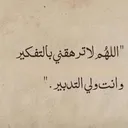 "اللهُم لا ترهقني بالتفكير
وانت ولي التدبير."